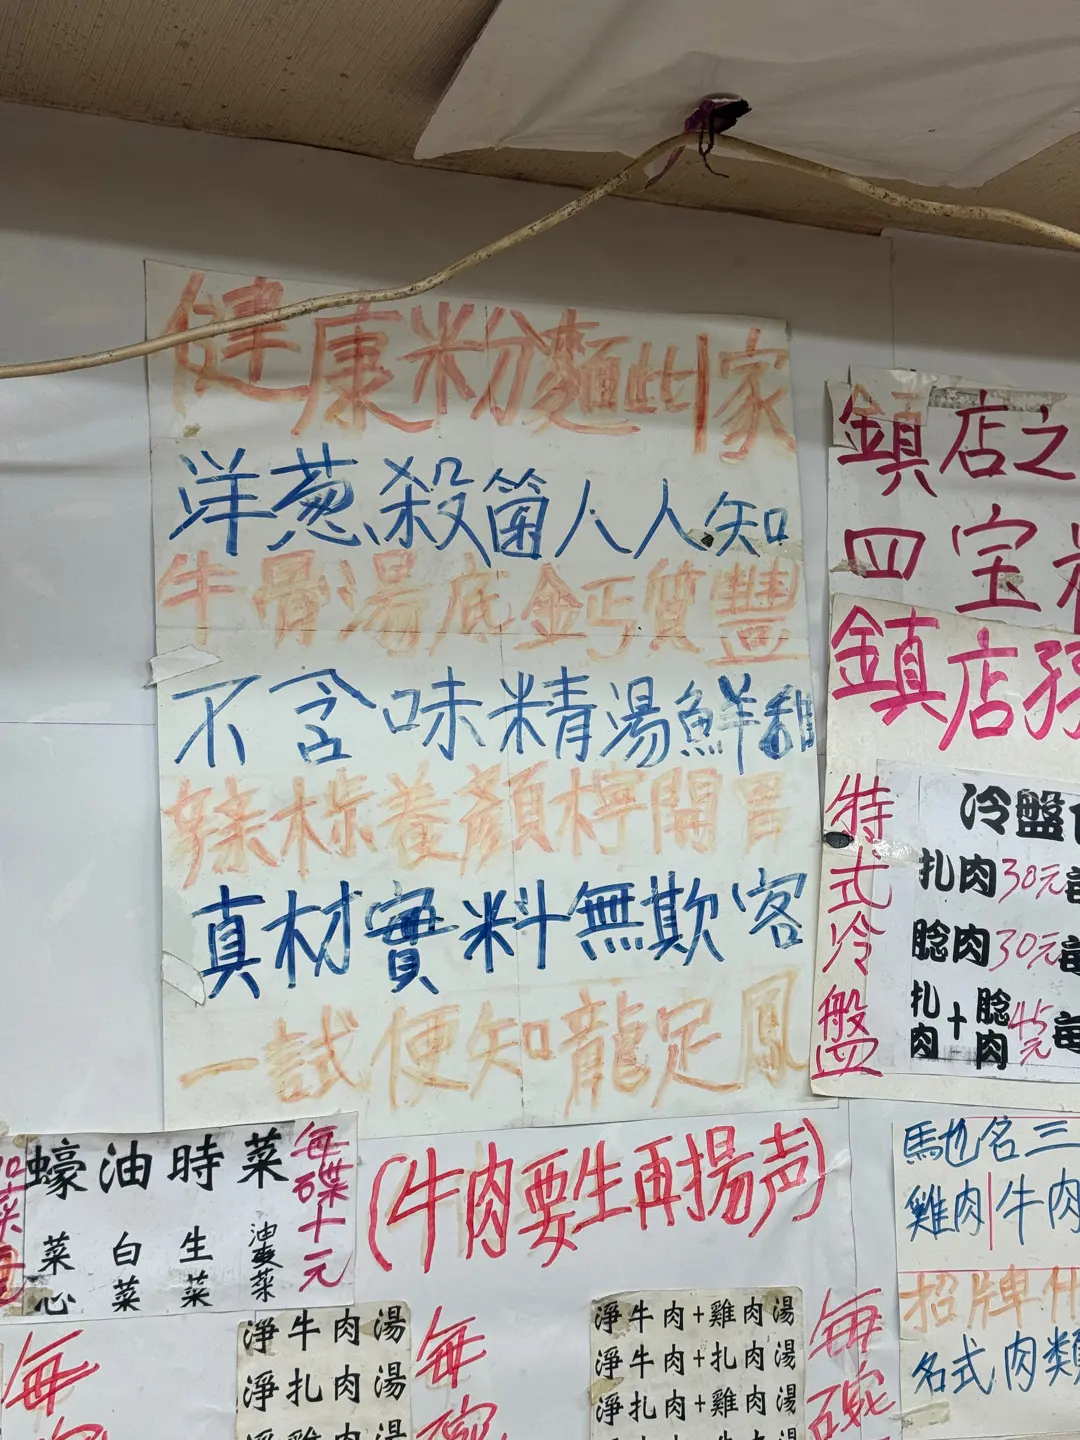 健康粉麵此家
洋葱殺菌人人知
牛骨湯底鈣質豐
不含味精湯鮮甜
養顏檸開胃
真材實料無欺客
一試便知龍定鳳
鎮店之
四宝
鎮店
特式冷盤
冷盤
扎肉30元
腍肉30元
扎肉+腍肉45元
蠔油時菜
菜心 白菜 生菜 油麥菜
每碟十元
(牛肉要生再揚声)
淨牛肉湯
淨扎肉湯
每
淨牛肉+雞肉湯
淨牛肉+扎肉湯
淨扎肉+雞肉湯
每碗
馳名三
雞肉|牛肉
招牌什
名式肉類
每